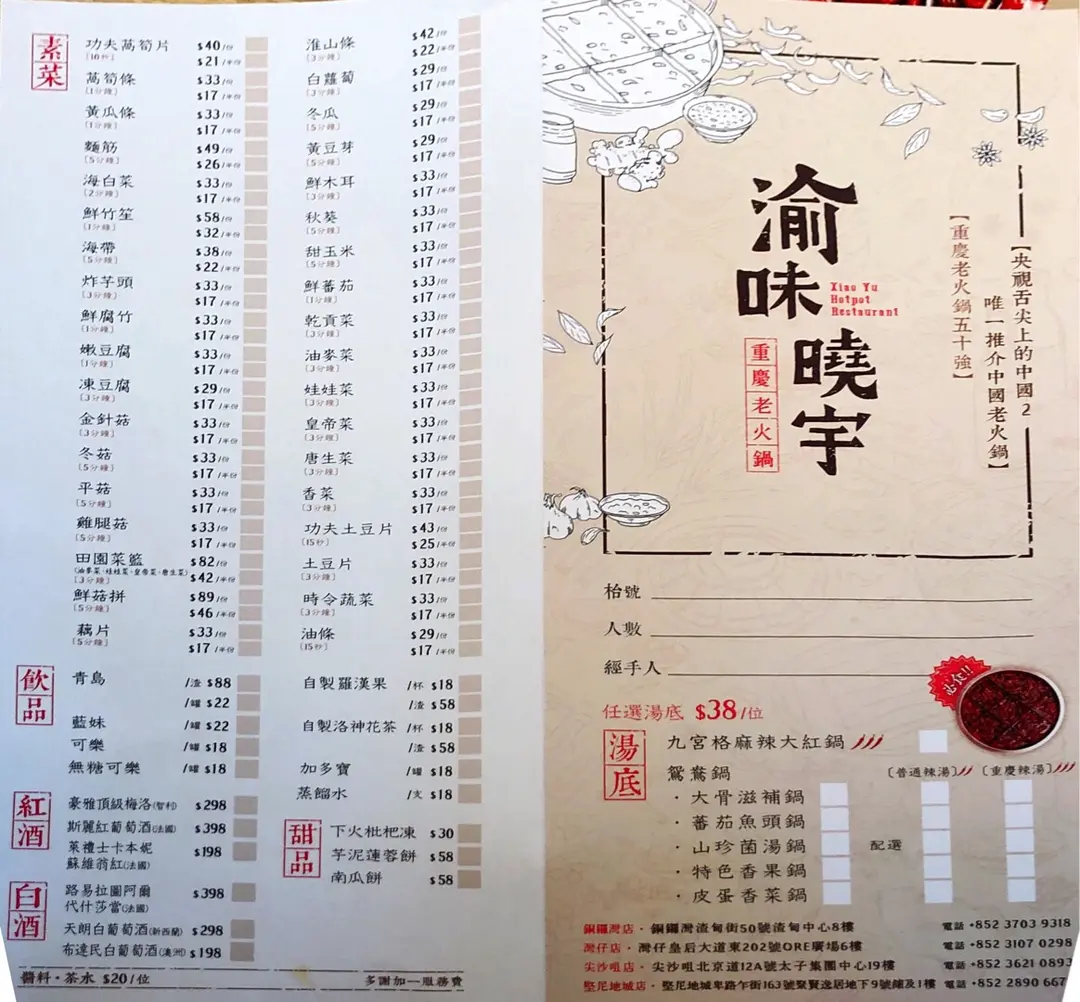 素菜
功夫萵筍片 $40/份
(10秒) $21/半份
萵筍條 $33/份
(1分鐘) $17/半份
黃瓜條 $33/份
(1分鐘) $17/半份
麵筋 $49/份
(5分鐘) $26/半份
海白菜 $33/份
(2分鐘) $17/半份
鮮竹笙 $58/份
(1分鐘) $32/半份
海帶 $38/份
(5分鐘) $22/半份
炸芋頭 $33/份
(3分鐘) $17/半份
鮮腐竹 $33/份
(1分鐘) $17/半份
嫩豆腐 $33/份
(1分鐘) $17/半份
凍豆腐 $29/份
(3分鐘) $17/半份
金針菇 $33/份
(3分鐘) $17/半份
冬菇 $33/份
(5分鐘) $17/半份
平菇 $33/份
(5分鐘) $17/半份
雞腿菇 $33/份
(5分鐘) $17/半份
田園菜籃 $82/份
(油麥菜、娃娃菜、皇帝菜、唐生菜)
(3分鐘) $42/半份
鮮菇拼 $89/份
(5分鐘) $46/半份
藕片 $33/份
(5分鐘) $17/半份
淮山條 $42/份
(3分鐘) $22/半份
白蘿蔔 $29/份
(3分鐘) $17/半份
冬瓜 $29/份
(5分鐘) $17/半份
黃豆芽 $29/份
(5分鐘) $17/半份
鮮木耳 $33/份
(3分鐘) $17/半份
秋葵 $33/份
(5分鐘) $17/半份
甜玉米 $33/份
(5分鐘) $17/半份
鮮蕃茄 $33/份
(1分鐘) $17/半份
乾貢菜 $33/份
(3分鐘) $17/半份
油麥菜 $33/份
(3分鐘) $17/半份
娃娃菜 $33/份
(3分鐘) $17/半份
皇帝菜 $33/份
(3分鐘) $17/半份
唐生菜 $33/份
(3分鐘) $17/半份
香菜 $33/份
(3分鐘) $17/半份
功夫土豆片 $43/份
(15秒) $25/半份
土豆片 $33/份
(3分鐘) $17/半份
時令蔬菜 $33/份
(3分鐘) $17/半份
油條 $29/份
(15秒) $17/半份
飲品
青島 /渣 $88
/罐 $22
藍妹 /罐 $22
可樂 /罐 $18
無糖可樂 /罐 $18
自製羅漢果 /杯 $18
/渣 $58
自製洛神花茶 /杯 $18
/渣 $58
加多寶 /罐 $18
蒸餾水 /支 $18
紅酒
豪雅頂級梅洛(智利) $298
斯麗紅葡萄酒(法國) $398
萊禮士卡本妮
蘇維翁紅(法國) $198
白酒
路易拉圖阿爾
代什莎當(法國) $398
天朗白葡萄酒(新西蘭) $298
布達民白葡萄酒(澳洲) $198
甜品
下火枇杷凍 $30
芋泥蓮蓉餅 $58
南瓜餅 $58
醬料·茶水 $20/位
多謝加一服務費
渝味曉宇
Xiao Yu
Hotpot
Restaurant
重慶老火鍋
【央視舌尖上的中國2
唯一推介中國老火鍋】
【重慶老火鍋五十強】
枱號
人數
經手人
必食!!
任選湯底 $38/位
湯底
九宮格麻辣大紅鍋
鴛鴦鍋 (普通辣湯) (重慶辣湯)
·大骨滋補鍋
·蕃茄魚頭鍋
·山珍菌湯鍋 配選
·特色香果鍋
·皮蛋香菜鍋
銅鑼灣店·銅鑼灣渣甸街50號渣甸中心8樓 電話 +852 3703 9318
灣仔店·灣仔皇后大道東202號ORE廣場6樓 電話 +852 3107 0298
尖沙咀店·尖沙咀北京道12A號太子集團中心19樓 電話 +852 3621 0893
堅尼地城店·堅尼地城卑路乍街163號聚賢逸居地下9號舖及1樓 電話 +852 2890 667